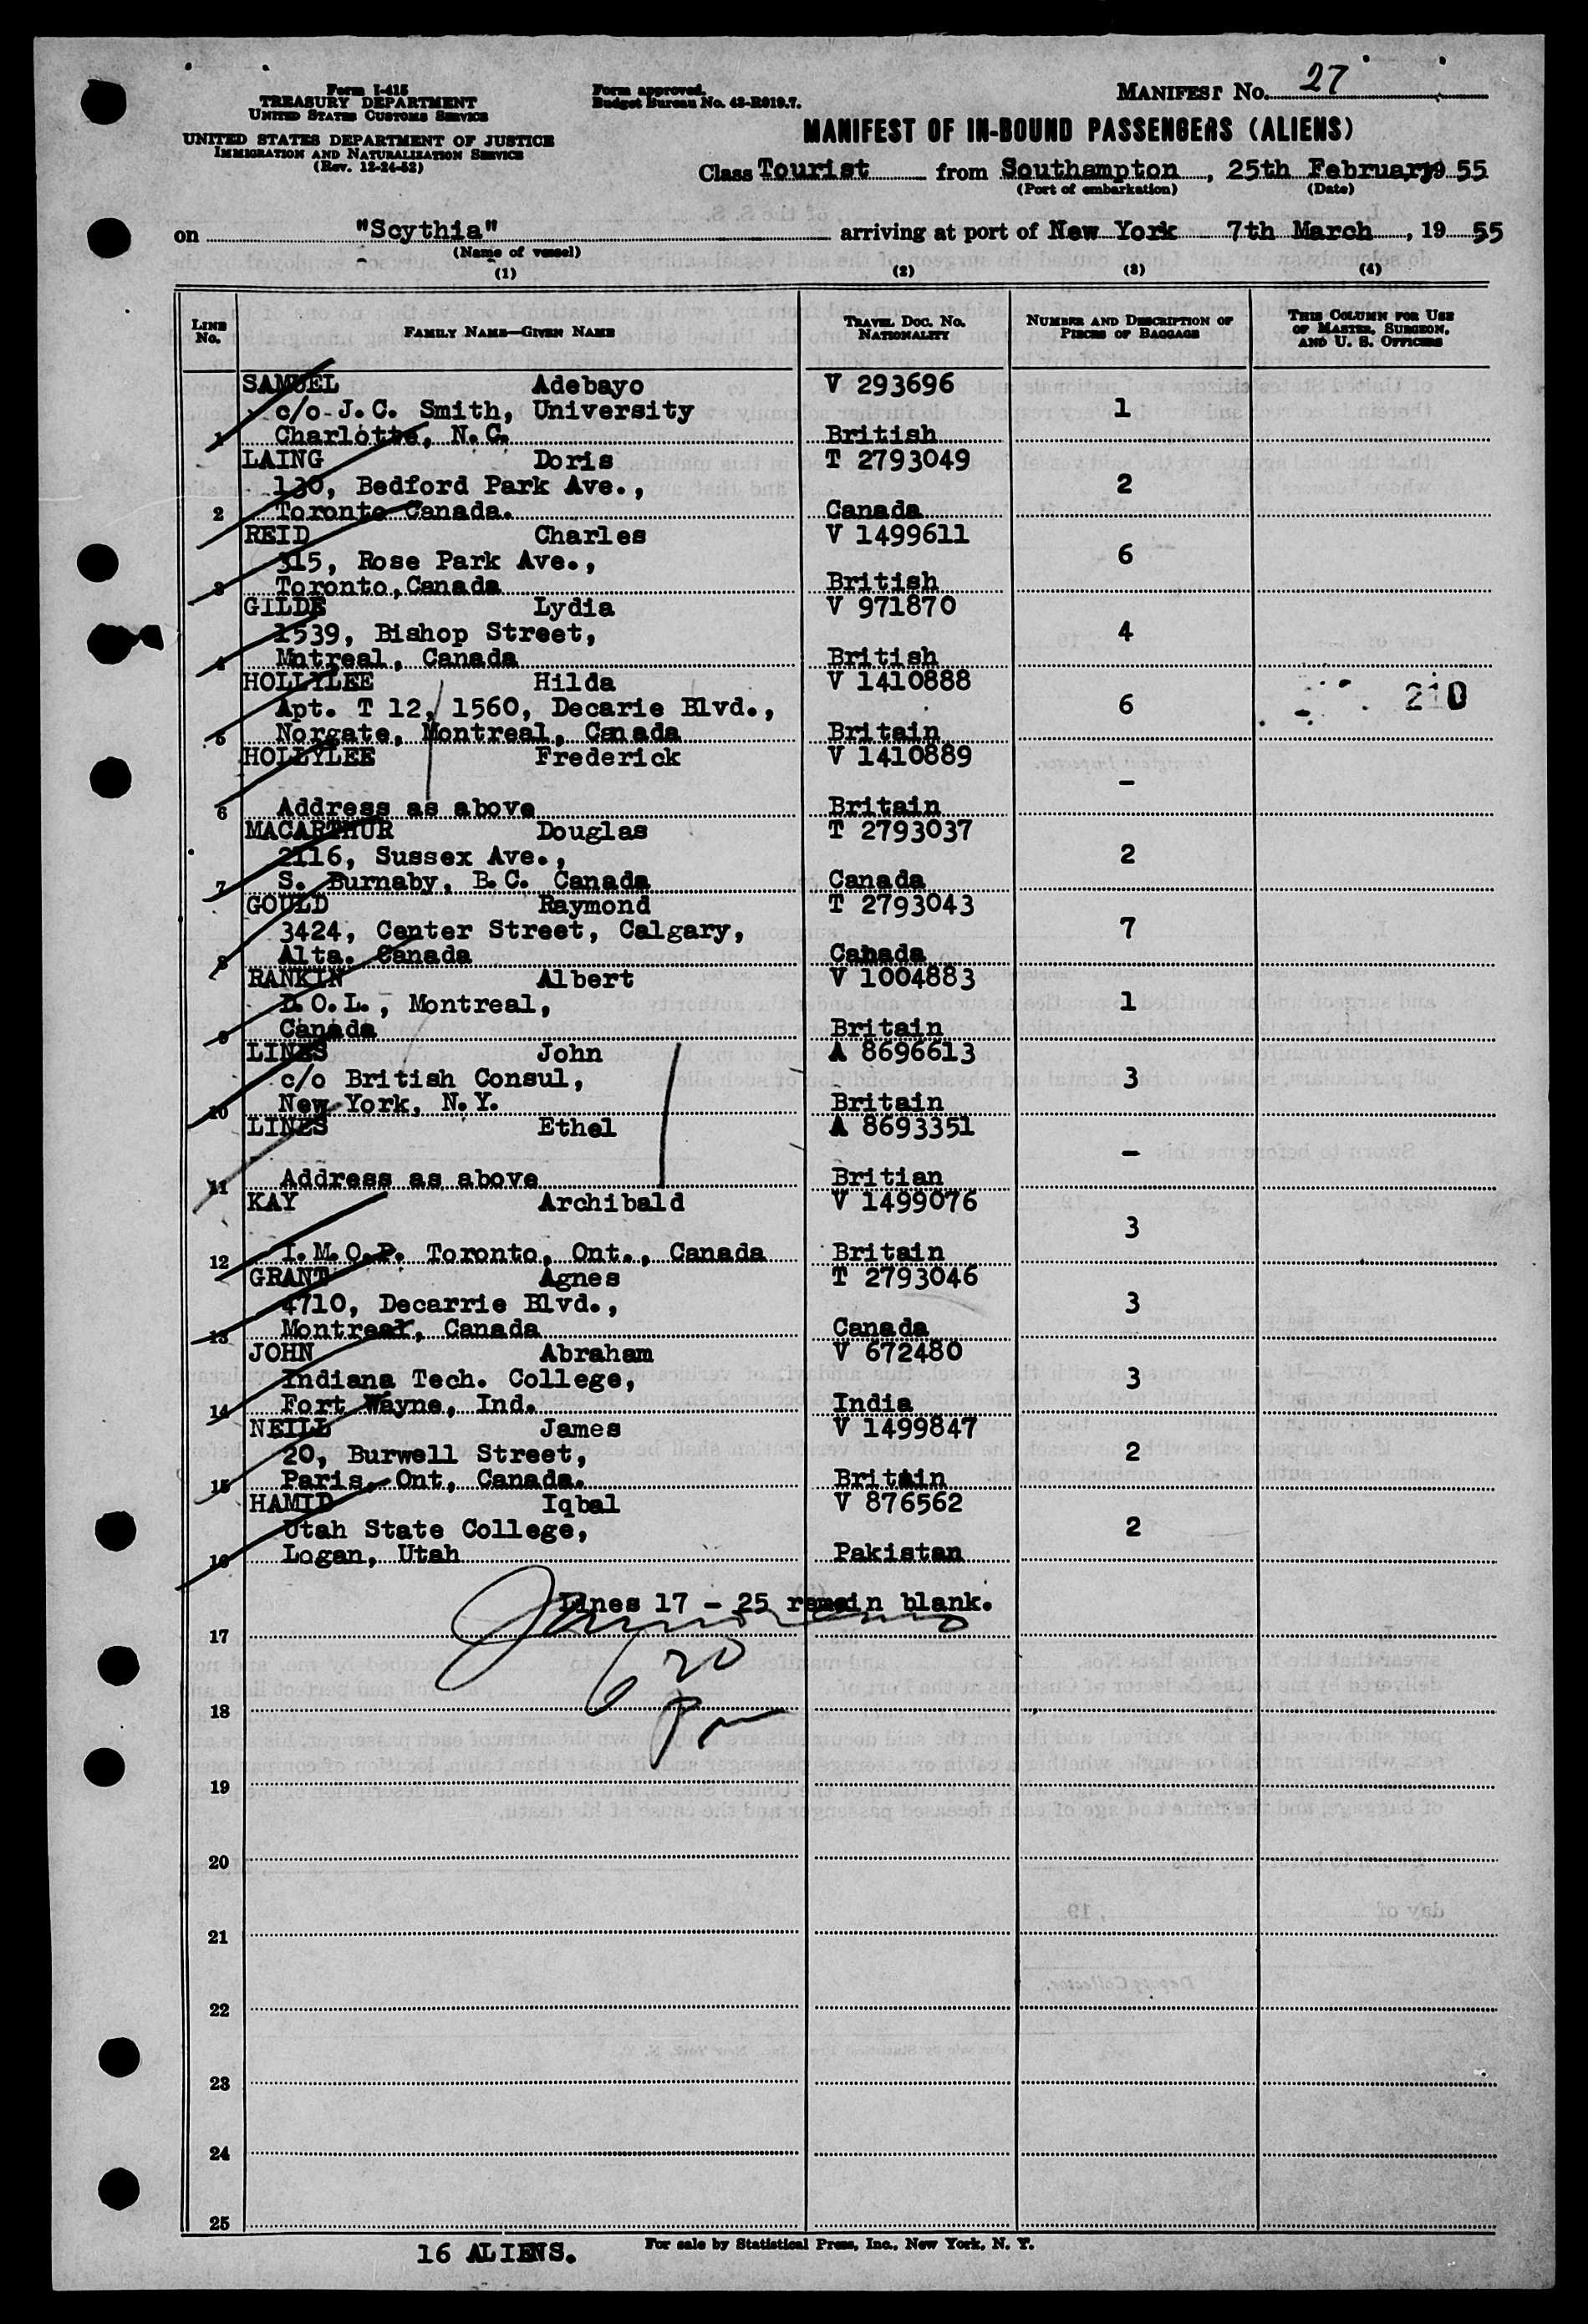 Form I-415
TREASURY DEPARTMENT
UNITED STATES CUSTOMS SERVICE
UNITED STATES DEPARTMENT OF JUSTICE
IMMIGRATION AND NATURALIZATION SERVICE
(Rev. 12-24-52)
Form approved.
Budget Bureau No. 43-R019.7.
MANIFEST No. 27
MANIFEST OF IN-BOUND PASSENGERS (ALIENS)
Class Tourist from Southampton, 25th February 19 55
(Port of embarkation) (Date)
on "Scythia" arriving at port of New York 7th March, 19 55
(Name of vessel)
(1) (2) (3) (4)
LINE No. FAMILY NAME—GIVEN NAME TRAVEL DOC. No. NATIONALITY NUMBER AND DESCRIPTION OF PIECES OF BAGGAGE THIS COLUMN FOR USE OF MASTER, SURGEON, AND U. S. OFFICERS
SAMUEL Adebayo V 293696
c/o J.C. Smith, University 1
1 Charlotte, N.C. British
LAING Doris T 2793049
130, Bedford Park Ave., 2
2 Toronto Canada. Canada
REID Charles V 1499611
315, Rose Park Ave., 6
3 Toronto, Canada British
GILDE Lydia V 971870
1539, Bishop Street, 4
4 Mntreal, Canada British
HOLLYLEE Hilda V 1410888
Apt. T 12, 1560, Decarie Blvd., 6 210
5 Norgate, Montreal, Canada Britain
HOLLYLEE Frederick V 1410889
-
6 Address as above Britain
MACARTHUR Douglas T 2793037
2116, Sussex Ave., 2
7 S. Burnaby, B.C. Canada Canada
GOULD Raymond T 2793043
3424, Center Street, Calgary, 7
8 Alta. Canada Canada
RANKIN Albert V 1004883
D.O.L., Montreal, 1
9 Canada Britain
LINES John A 8696613
c/o British Consul, 3
10 New York, N.Y. Britain
LINES Ethel A 8693351
-
11 Address as above Britian
KAY Archibald V 1499076
3
12 I.M.O.P. Toronto, Ont., Canada Britain
GRANT Agnes T 2793046
4710, Decarrie Blvd., 3
13 Montreal, Canada Canada
JOHN Abraham V 672480
Indiana Tech. College, 3
14 Fort Wayne, Ind. India
NEILL James V 1499847
20, Burwell Street, 2
15 Paris, Ont, Canada. Britain
HAMID Iqbal V 876562
Utah State College, 2
16 Logan, Utah Pakistan
Lines 17 - 25 remain blank.
17
18
19
20
21
22
23
24
25
16 ALIENS.
For sale by Statistical Press, Inc., New York, N. Y.